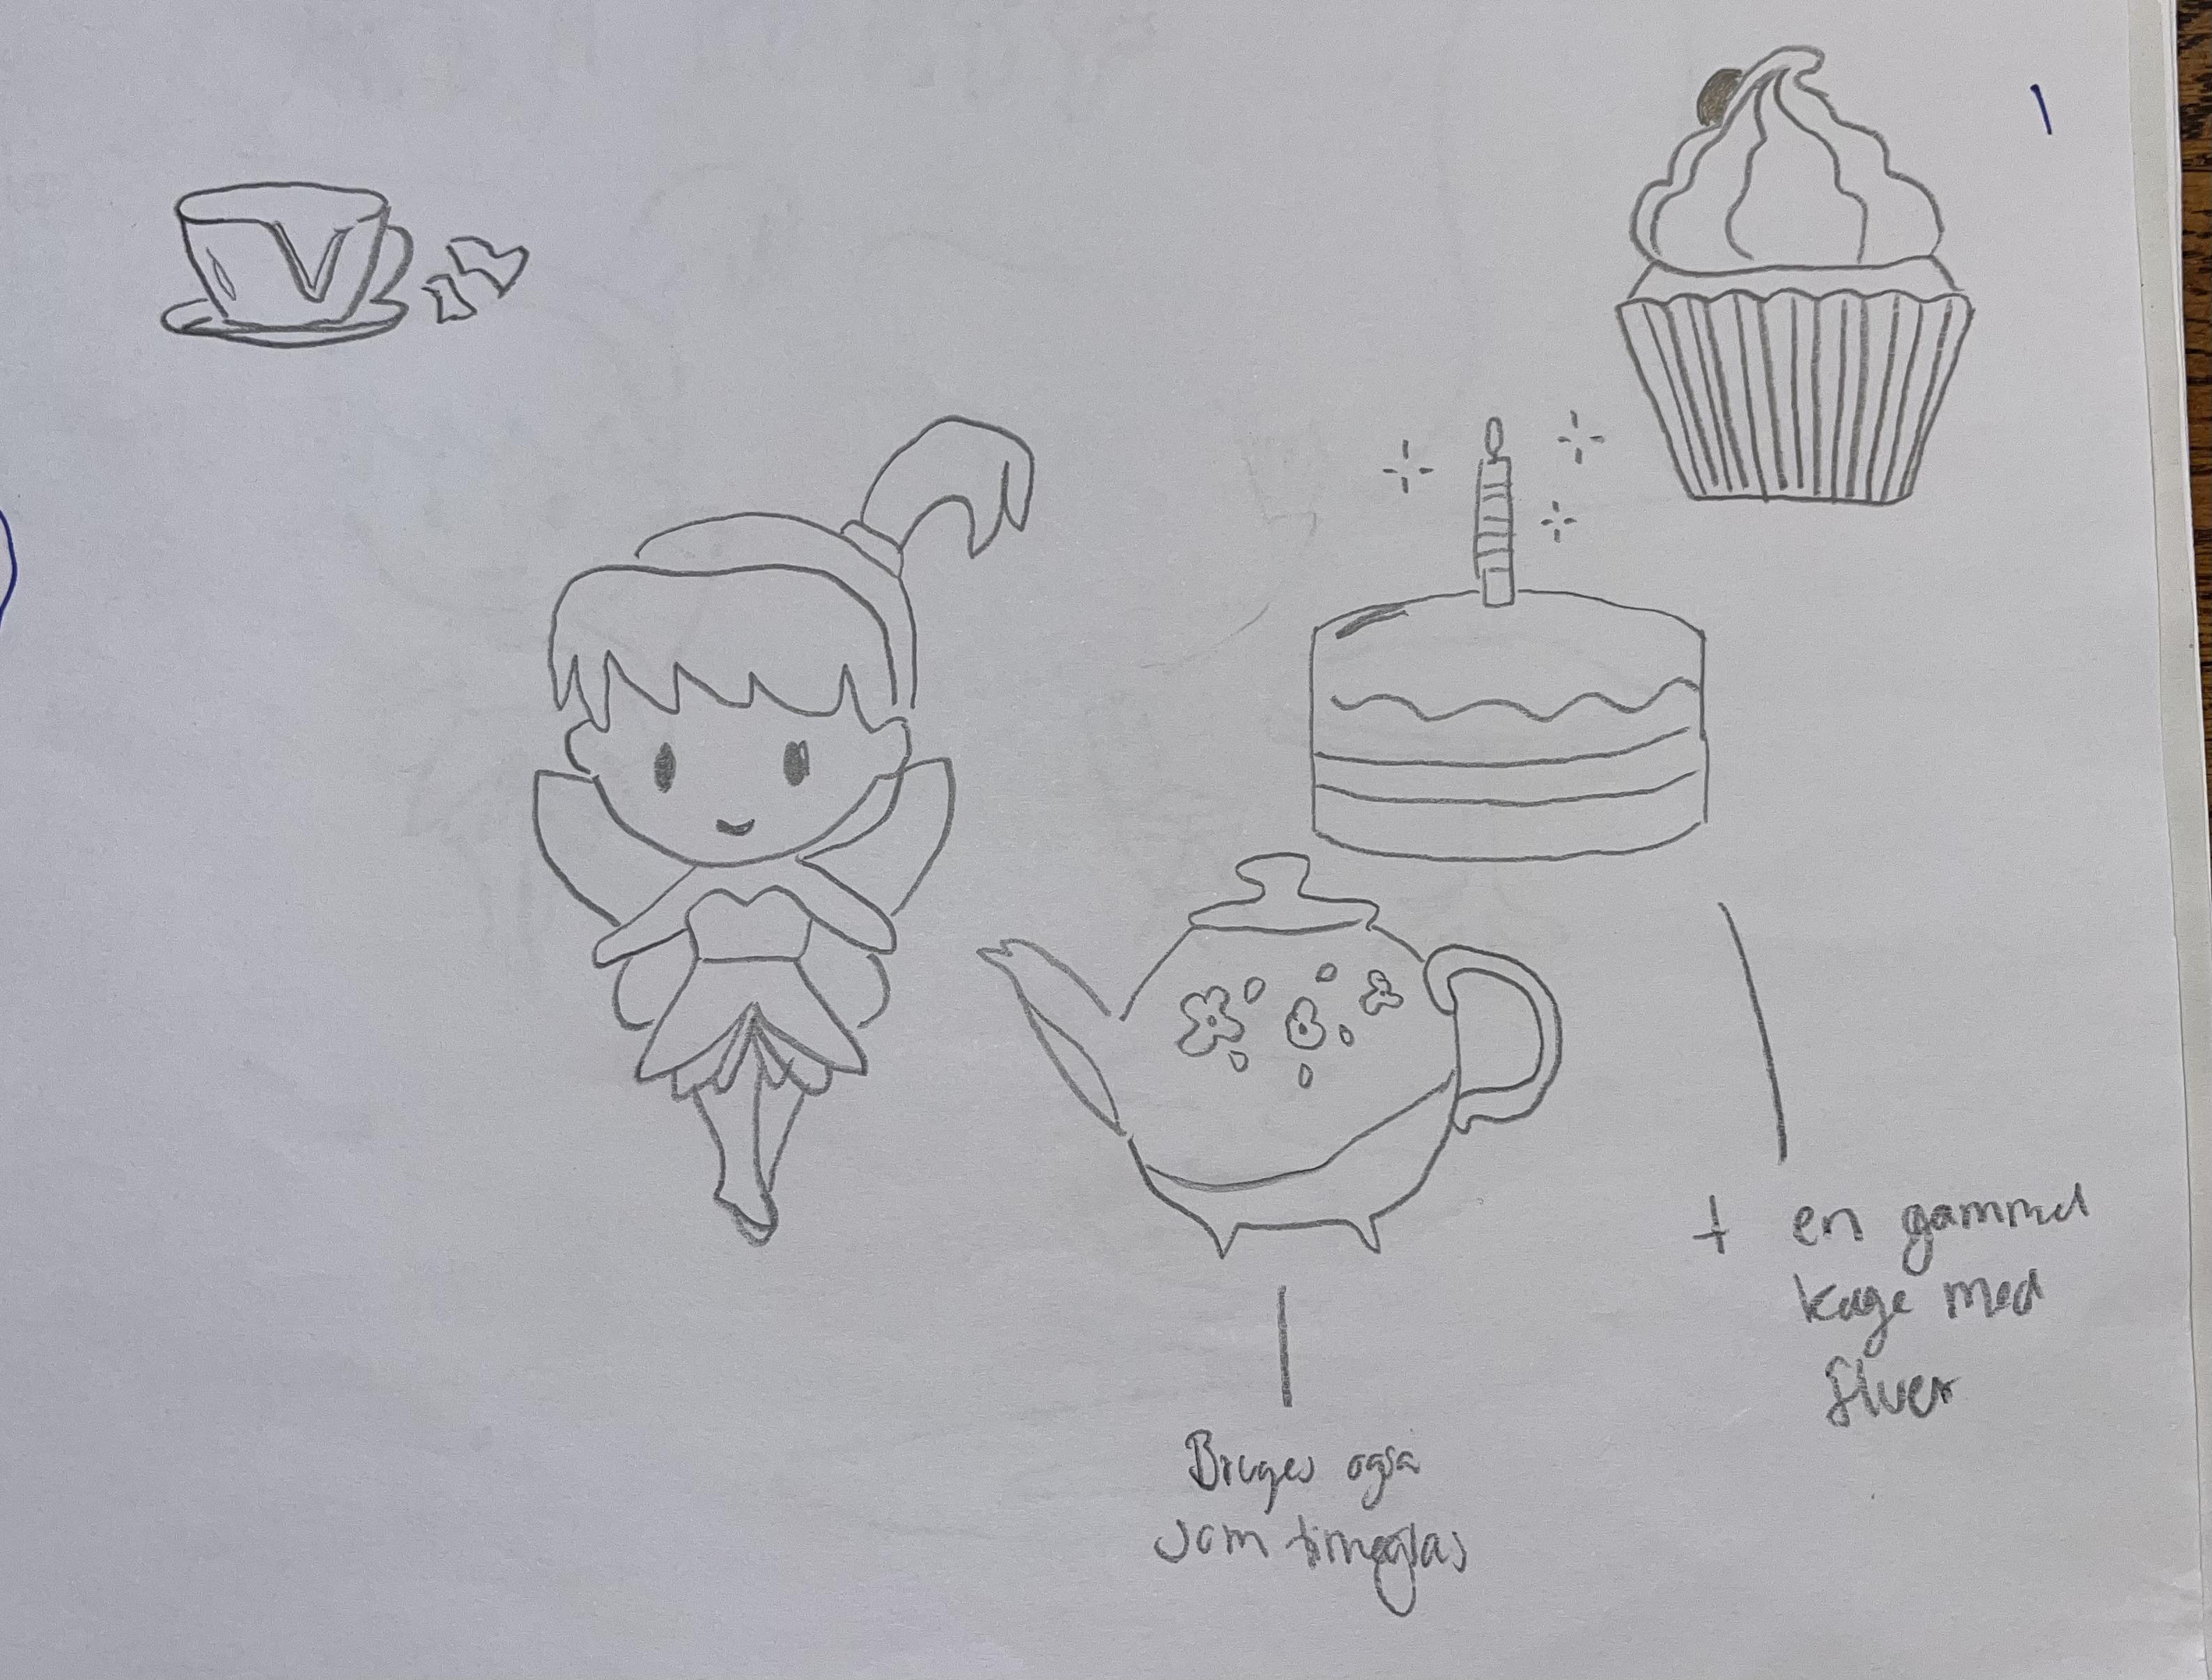 + en gammel
kage med
fluer
Bruges også
som timeglas